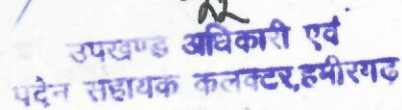 उपखण्ड अधिकारी एवं
पदेन सहायक कलक्टर,हमीरगढ़